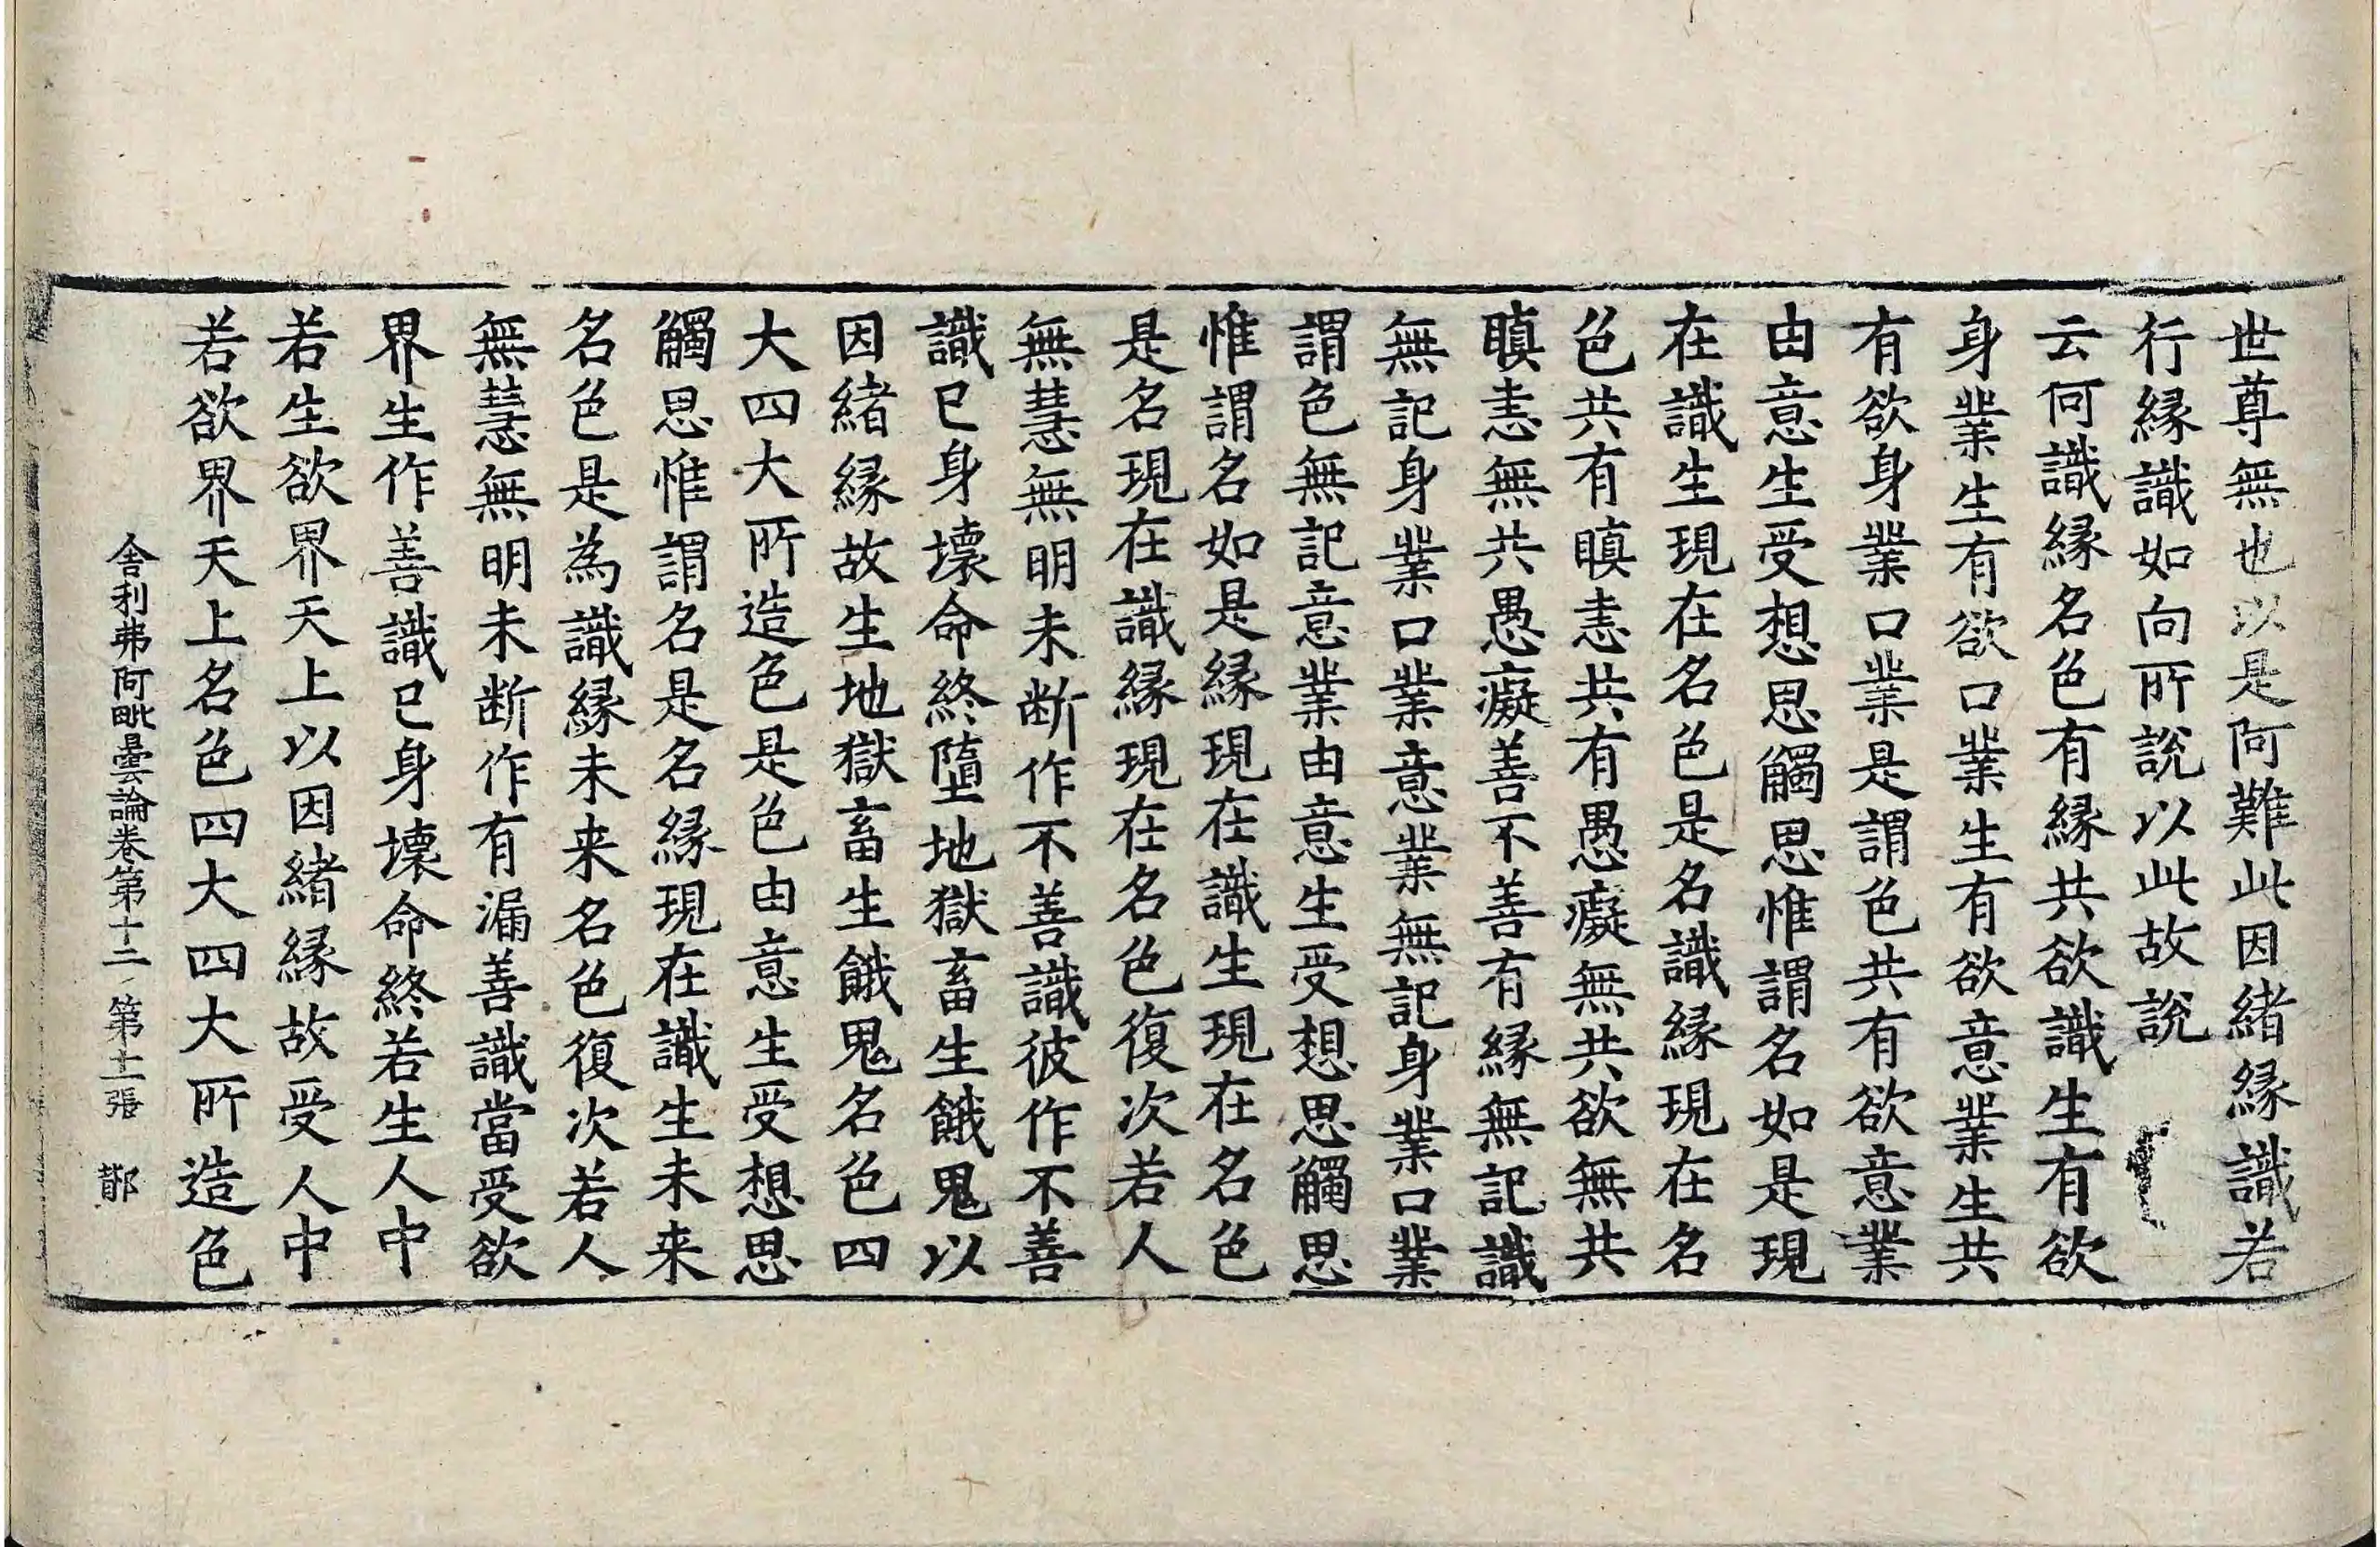 世尊無也以是阿難此因緒縁識若
行縁識如向所說以此故說
云何識縁名色有縁共欲識生有欲
身業生有欲口業生有欲意業生共
有欲身業口業是謂色共有欲意業
由意生受想思觸思惟謂名如是現
在識生現在名色是名識縁現在名
色共有瞋恚共有愚癡無共欲無共
瞋恚無共愚癡善不善有縁無記識
無記身業口業意業無記身業口業
謂色無記意業由意生受想思觸思
惟謂名如是縁現在識生現在名色
是名現在識縁現在名色復次若人
無慧無明未断作不善識彼作不善
識已身壞命終墮地獄畜生餓鬼以
因緒縁故生地獄畜生餓鬼名色四
大四大所造色是色由意生受想思
觸思惟謂名是名縁現在識生未来
名色是為識縁未来名色復次若人
無慧無明未断作有漏善識當受欲
界生作善識已身壞命終若生人中
若生欲界天上以因緒縁故受人中
若欲界天上名色四大四大所造色
舎利弗阿毗曇論卷第十二 第十一張 鄑